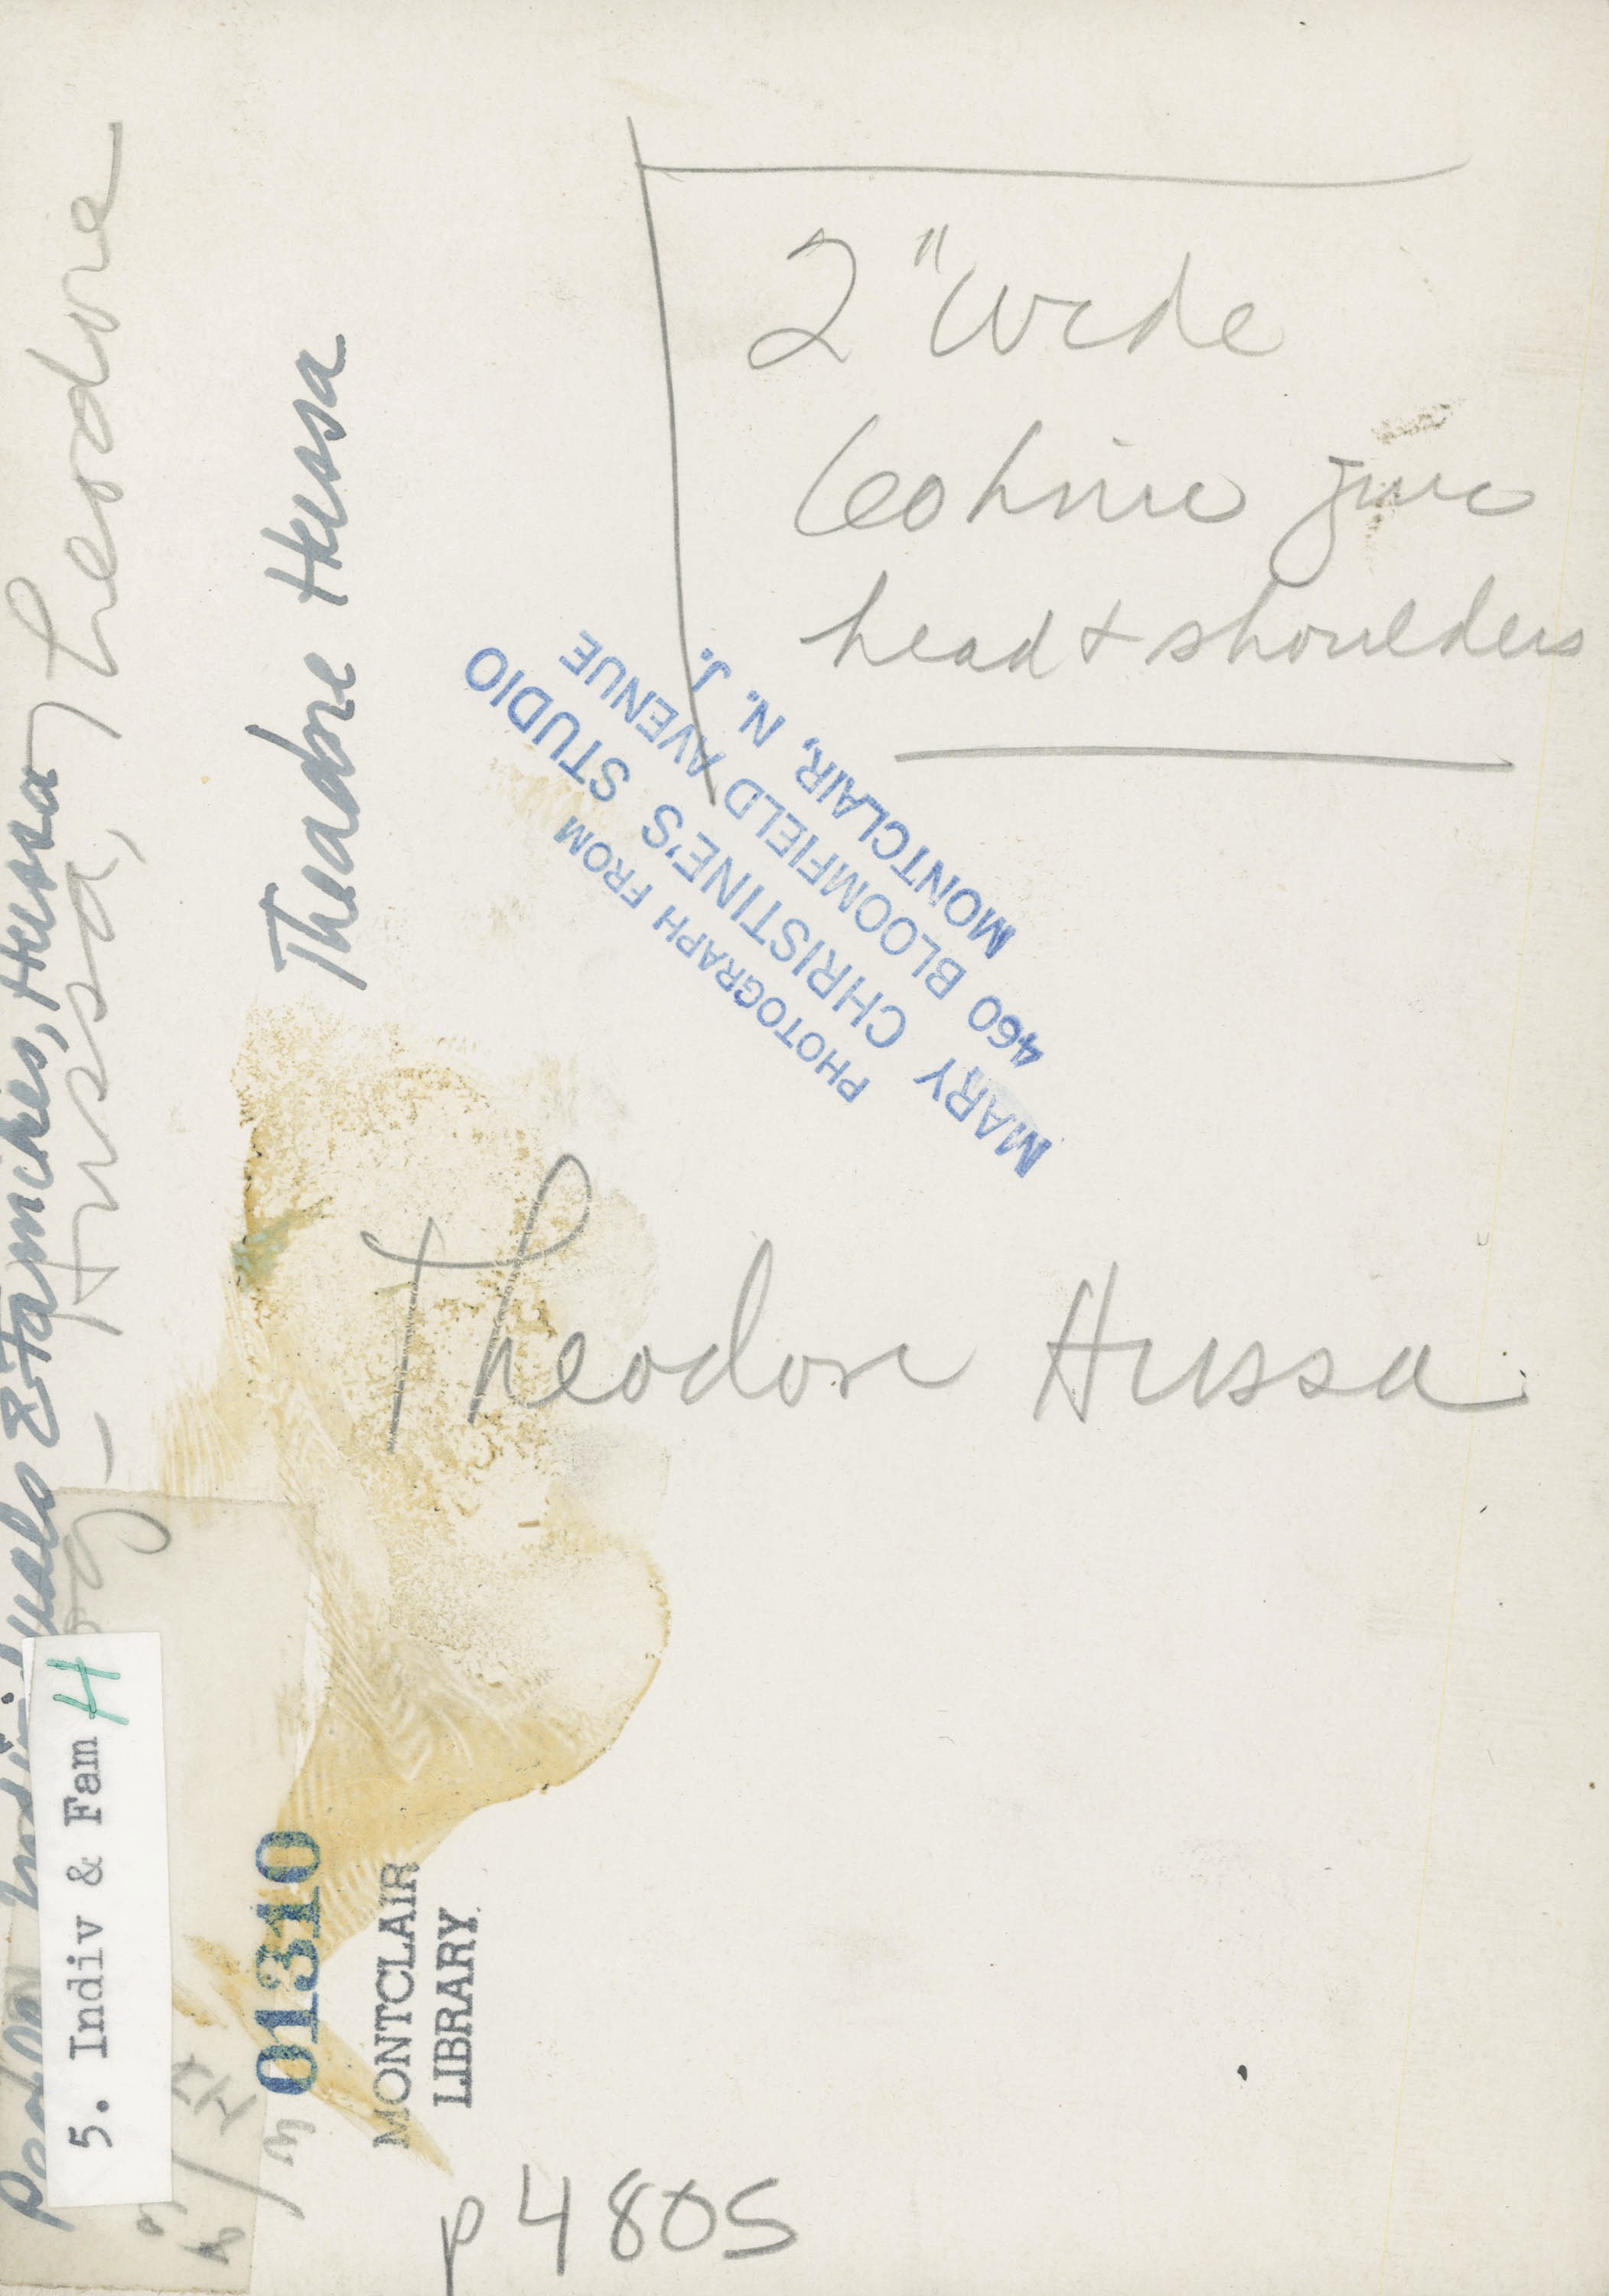 2" Wide
60 line zinc
head + shoulders
PHOTOGRAPH FROM
MARY CHRISTINE'S STUDIO
460 BLOOMFIELD AVENUE
MONTCLAIR, N. J.
Theodore Hussa
Theadore Hussa
Individuals & Families, Hussa
Hussa, Theodore
5. Indiv & Fam H
01310
MONTCLAIR
LIBRARY
p 4805